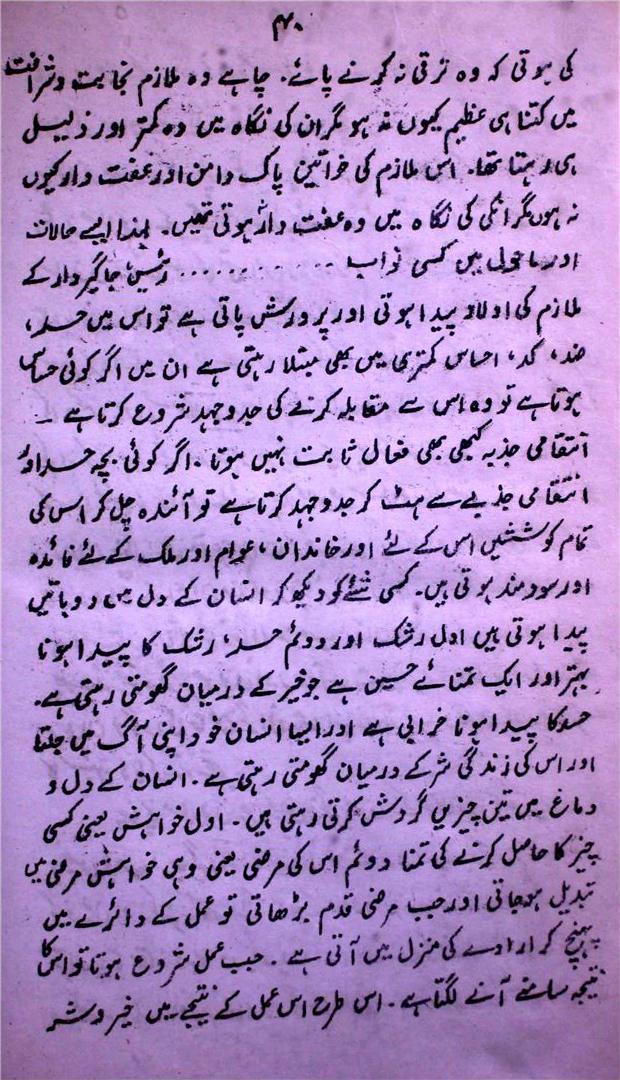 ۴۰
کی ہوتی کہ وہ ترقی نہ کرنے پائے۔ چاہے وہ ملازم نجابت و شرافت
میں کتنا ہی عظیم کیوں نہ ہو مگر ان کی نگاہ میں وہ کمتر اور ذلیل
ہی رہتا تھا۔ اس ملازم کی خواتین پاک دامن اور عفت دار کیوں
نہ ہوں مگر انکی کی نگاہ میں وہ عفت دار ہوتی تھیں۔ لہذا ایسے حالات
اور ماحول میں کسی نواب ............ رئیس، جاگیردار کے
ملازم کی اولاد پیدا ہوتی اور پرورش پاتی ہے تو اس میں حسد،
ضد، کد، احساس کمتری میں بھی مبتلا رہتی ہے ان میں اگر کوئی حساس
ہوتا ہے تو وہ اس سے مقابلہ کرنے کی جدوجہد شروع کرتا ہے ۔
انتقامی جذبہ کبھی بھی فعال ثابت نہیں ہوتا۔ اگر کوئی بچہ حسد اور
انتقامی جذبے سے ہٹ کر جدوجہد کرتا ہے تو آئندہ چل کر اس کی
تمام کوششیں اس کے لئے اور خاندان، عوام اور ملک کے لئے فائدہ
اور سودمند ہوتی ہیں۔ کسی شئے کو دیکھ کر انسان کے دل میں دو باتیں
پیدا ہوتی ہیں اول رشک اور دوئم حسد، رشک کا پیدا ہونا
بہتر اور ایک تمنائے حسین ہے جو خیر کے درمیان گھومتی رہتی ہے۔
حسد کا پیدا ہونا خرابی ہے اور ایسا انسان خود اپنی آگ میں جلتا
اور اس کی زندگی شر کے درمیان گھومتی رہتی ہے۔ انسان کے دل و
دماغ میں تین چیزیں گردش کرتی رہتی ہیں۔ اول خواہش یعنی کسی
چیز کا حاصل کرنے کی تمنا دوئم اس کی مرضی یعنی وہی خواہش مرضی میں
تبدیل ہوجاتی اور جب مرضی قدم بڑھاتی تو عمل کے دائرے میں
پہنچ کر ارادے کی منزل میں آتی ہے۔ جب عمل شروع ہوتا تو اس کا
نتیجہ سامنے آنے لگتا ہے۔ اس طرح اس عمل کے نتیجے میں خیر و شر